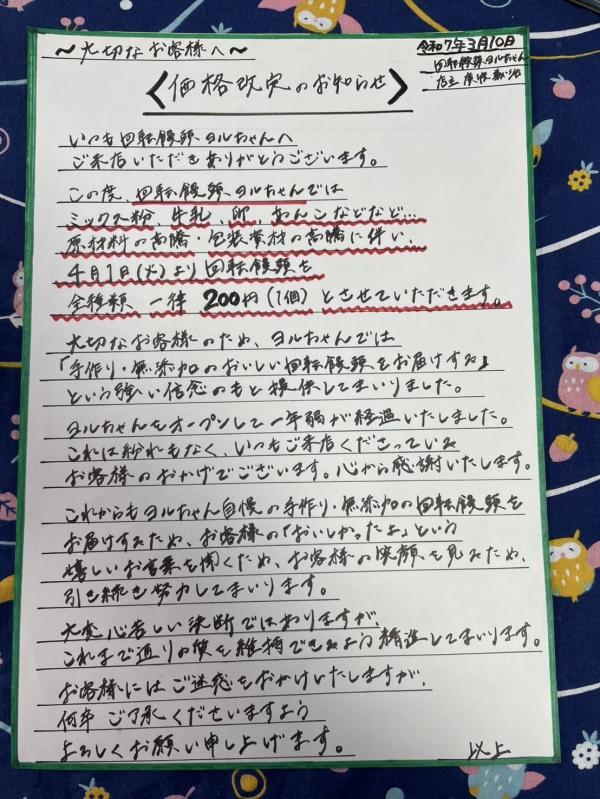 ～大切なお客様へ～
令和7年3月10日
回転饅頭ヨルちゃん
店主
〈価格改定のお知らせ〉
いつも回転饅頭ヨルちゃんへ
ご来店いただきありがとうございます。
この度、回転饅頭ヨルちゃんでは
ミックス粉、牛乳、卵、あんこなどなど…
原材料の高騰・包装資材の高騰に伴い、
4月1日(火)より回転饅頭を
全種類 一律 200円(1個)とさせていただきます。
大切なお客様のため、ヨルちゃんでは
「手作り・無添加のおいしい回転饅頭をお届けする」
という強い信念のもと提供してまいりました。
ヨルちゃんもオープンして一年弱が経過いたしました。
これは紛れもなく、いつもご来店くださっている
お客様のおかげでございます。心から感謝いたします。
これからもヨルちゃん自慢の手作り・無添加の回転饅頭を
お届けするため、お客様の「おいしかったよ」という
嬉しいお言葉を聞くため、お客様の笑顔を見るため、
引き続き努力してまいります。
大変心苦しい決断ではありますが、
これまで通りの味を維持できるよう精進してまいります。
お客様にはご迷惑をおかけいたしますが、
何卒 ご了承くださいますよう
よろしくお願い申し上げます。
以上